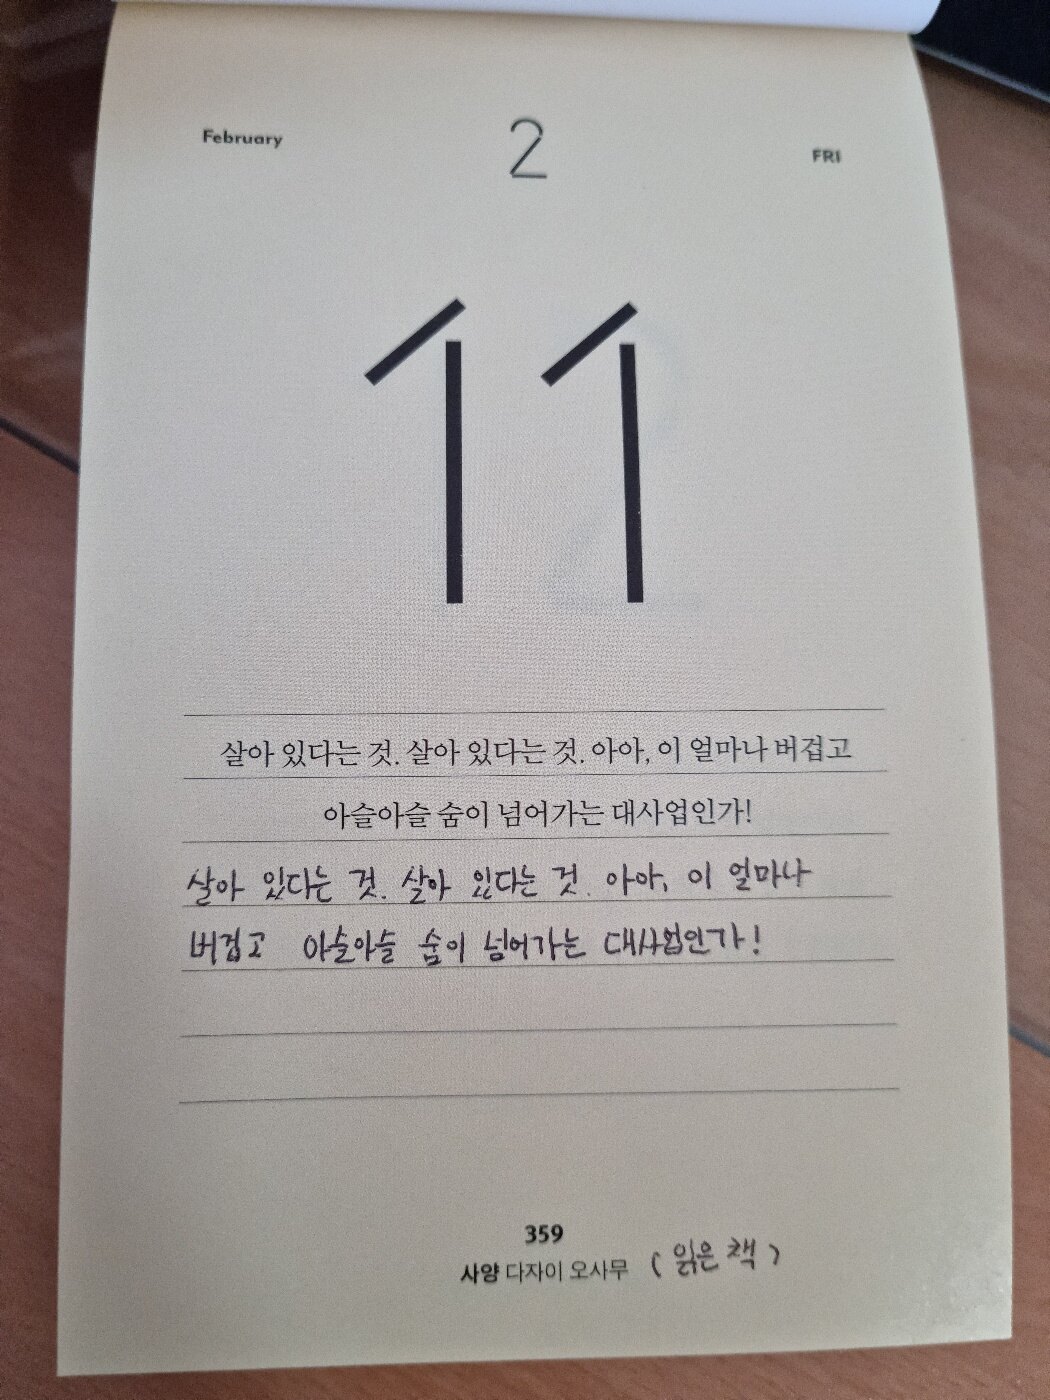 February 2 FRI
11
살아 있다는 것. 살아 있다는 것. 아아, 이 얼마나 버겁고
아슬아슬 숨이 넘어가는 대사업인가!
살아 있다는 것. 살아 있다는 것. 아아, 이 얼마나
버겁고 아슬아슬 숨이 넘어가는 대사업인가!
359
사양 다자이 오사무 (읽은 책)